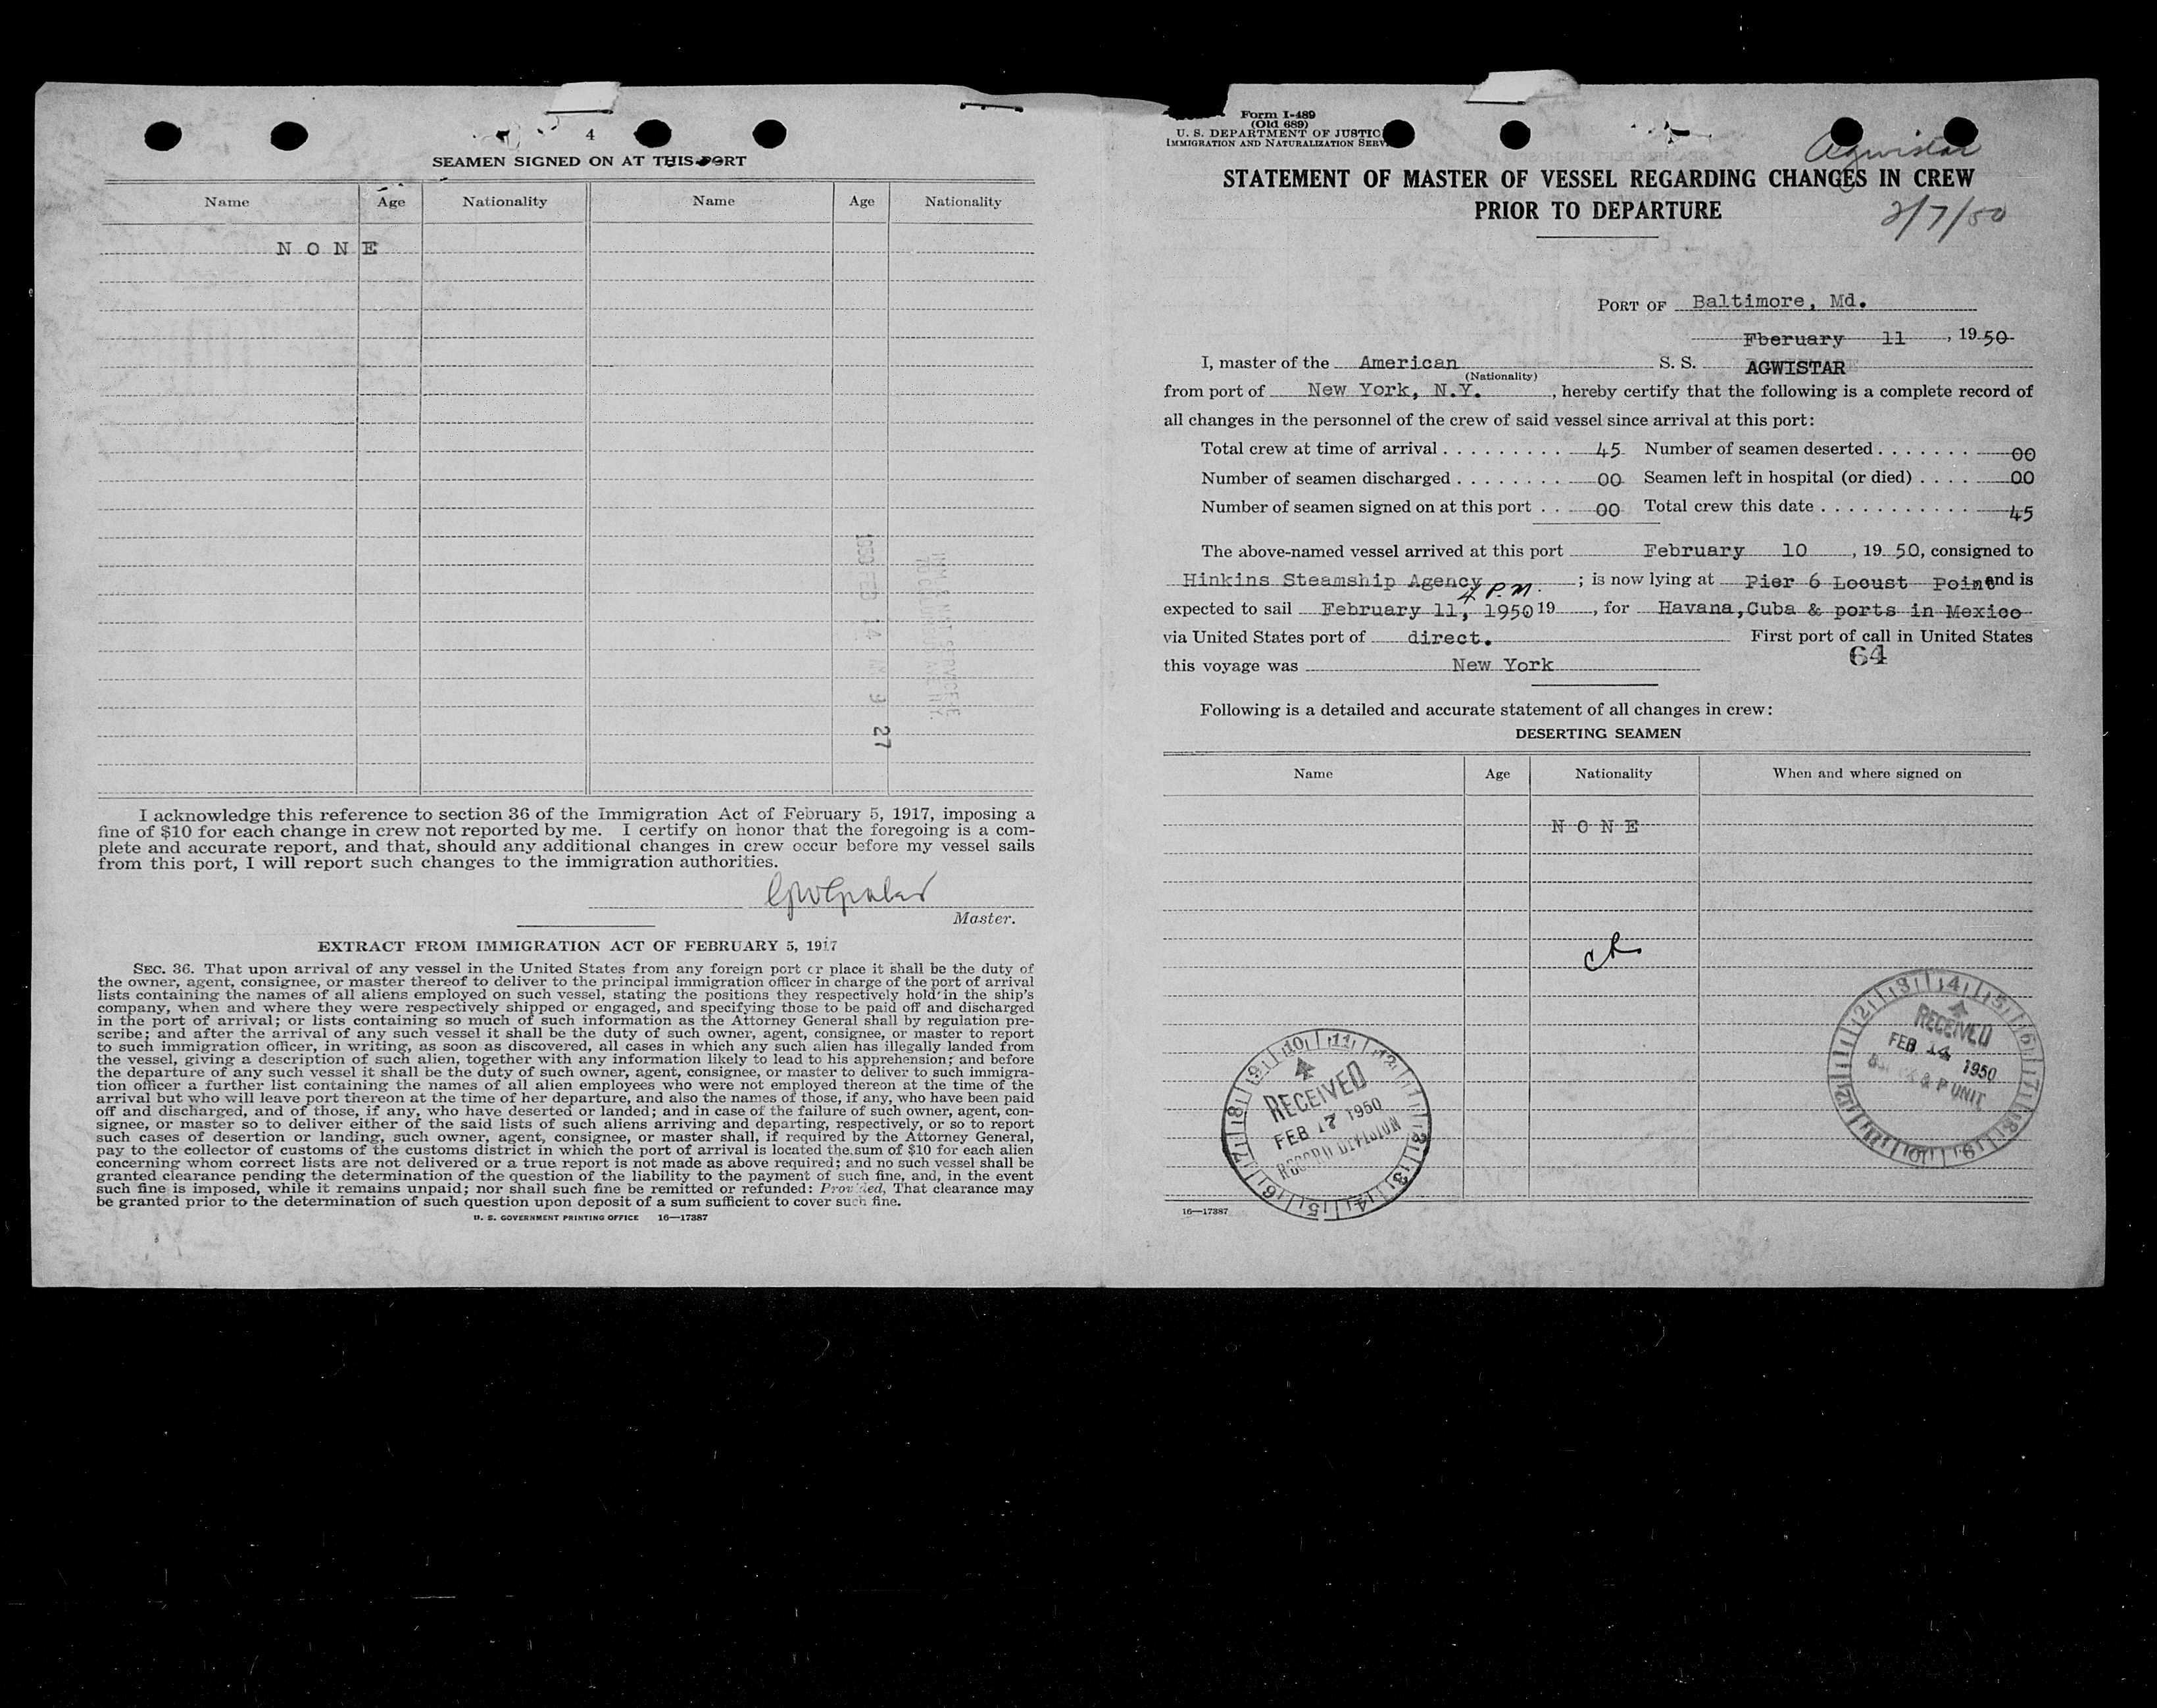 4
SEAMEN SIGNED ON AT THIS PORT
Name Age Nationality Name Age Nationality
N O N E
1950 FEB 14 9 27
I acknowledge this reference to section 36 of the Immigration Act of February 5, 1917, imposing a
fine of $10 for each change in crew not reported by me. I certify on honor that the foregoing is a com-
plete and accurate report, and that, should any additional changes in crew occur before my vessel sails
from this port, I will report such changes to the immigration authorities.
Master.
EXTRACT FROM IMMIGRATION ACT OF FEBRUARY 5, 1917
SEC. 36. That upon arrival of any vessel in the United States from any foreign port or place it shall be the duty of
the owner, agent, consignee, or master thereof to deliver to the principal immigration officer in charge of the port of arrival
lists containing the names of all aliens employed on such vessel, stating the positions they respectively hold in the ship's
company, when and where they were respectively shipped or engaged, and specifying those to be paid off and discharged
in the port of arrival; or lists containing so much of such information as the Attorney General shall by regulation pre-
scribe; and after the arrival of any such vessel it shall be the duty of such owner, agent, consignee, or master to report
to such immigration officer, in writing, as soon as discovered, all cases in which any such alien has illegally landed from
the vessel, giving a description of such alien, together with any information likely to lead to his apprehension; and before
the departure of any such vessel it shall be the duty of such owner, agent, consignee, or master to deliver to such immigra-
tion officer a further list containing the names of all alien employees who were not employed thereon at the time of the
arrival but who will leave port thereon at the time of her departure, and also the names of those, if any, who have been paid
off and discharged, and of those, if any, who have deserted or landed; and in case of the failure of such owner, agent, con-
signee, or master so to deliver either of the said lists of such aliens arriving and departing, respectively, or so to report
such cases of desertion or landing, such owner, agent, consignee, or master shall, if required by the Attorney General,
pay to the collector of customs of the customs district in which the port of arrival is located the sum of $10 for each alien
concerning whom correct lists are not delivered or a true report is not made as above required; and no such vessel shall be
granted clearance pending the determination of the question of the liability to the payment of such fine, and, in the event
such fine is imposed, while it remains unpaid; nor shall such fine be remitted or refunded: Provided, That clearance may
be granted prior to the determination of such question upon deposit of a sum sufficient to cover such fine.
U. S. GOVERNMENT PRINTING OFFICE 16—17387
Form I-489
(Old 689)
U. S. DEPARTMENT OF JUSTIC
IMMIGRATION AND NATURALIZATION SERV
Agwistar
STATEMENT OF MASTER OF VESSEL REGARDING CHANGES IN CREW
PRIOR TO DEPARTURE
2/7/50
PORT OF Baltimore, Md.
Fberuary 11, 1950
I, master of the American S. S. AGWISTAR
(Nationality)
from port of New York, N.Y., hereby certify that the following is a complete record of
all changes in the personnel of the crew of said vessel since arrival at this port:
Total crew at time of arrival . . . . . . . . . 45 Number of seamen deserted . . . . . . . 00
Number of seamen discharged . . . . . . . . 00 Seamen left in hospital (or died) . . . . 00
Number of seamen signed on at this port . . 00 Total crew this date . . . . . . . . . . . . 45
The above-named vessel arrived at this port February 10, 1950, consigned to
Hinkins Steamship Agency; is now lying at Pier 6 Locust Point and is
4 P.M.
expected to sail February 11, 1950 19, for Havana,Cuba & ports in Mexico
via United States port of direct. First port of call in United States
this voyage was New York
64
Following is a detailed and accurate statement of all changes in crew:
DESERTING SEAMEN
Name Age Nationality When and where signed on
N O N E
RECEIVED
FEB 14 1950
& P UNIT
RECEIVED
FEB 17 1950
RECORD DIVISION
16—17387